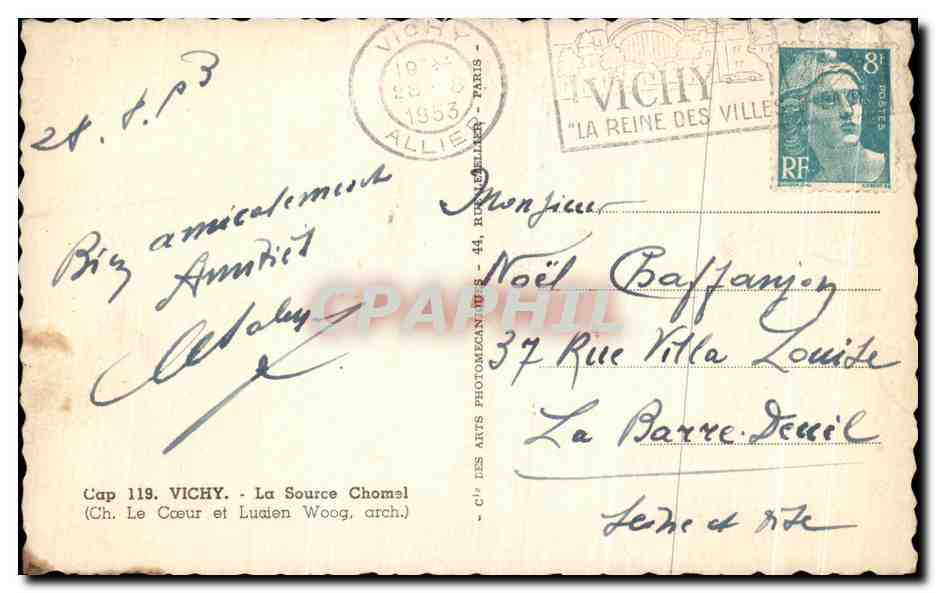 VICHY
1953
ALLIER
VICHY
"LA REINE DES VILLES
8F
POSTES
RF
28.8.53
Bien amicalement
Amitiés
Monsieur
Noël Chaffanjon
37 Rue Villa Louise
La Barre-Deuil
Seine et Oise
Cap 119. VICHY. - La Source Chomel
(Ch. Le Cœur et Lucien Woog, arch.)
- Cie DES ARTS PHOTOMECANIQUES - 44, RUE LETELLIER - PARIS -
CPAPHIL